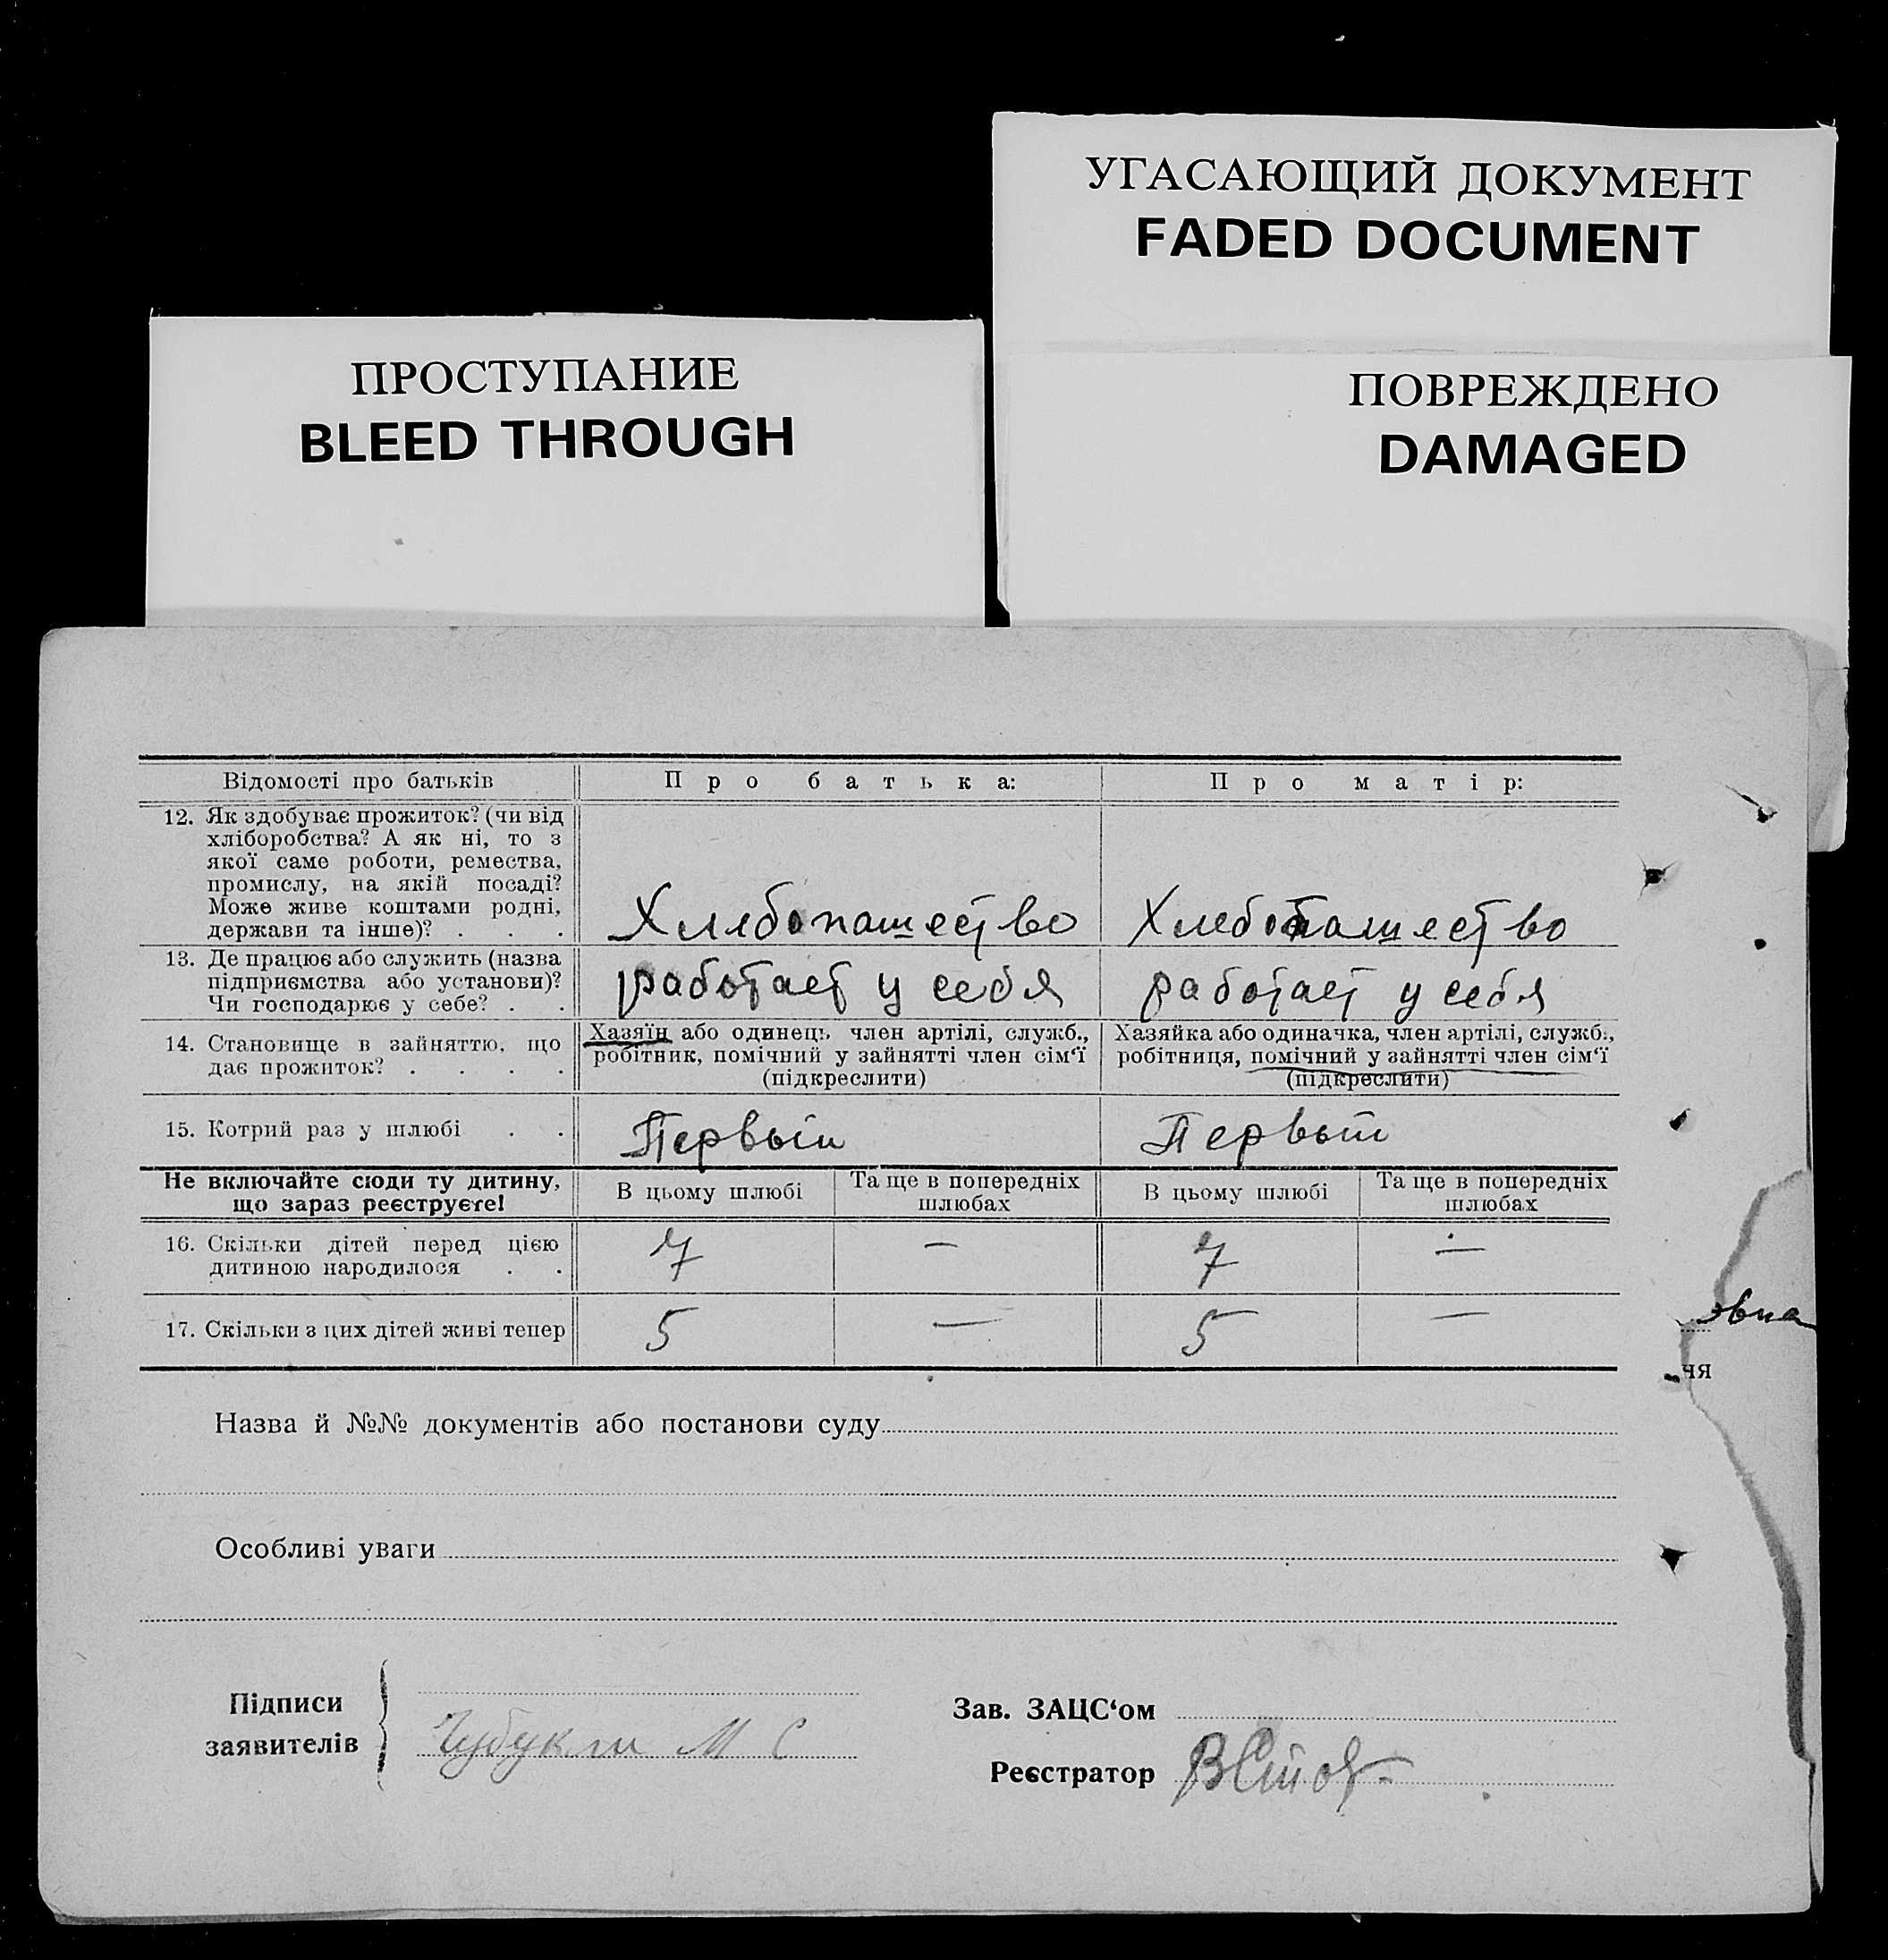 УГАСАЮЩИЙ ДОКУМЕНТ
FADED DOCUMENT
ПРОСТУПАНИЕ
BLEED THROUGH
ПОВРЕЖДЕНО
DAMAGED
Відомості про батьків Про батька: Про матір:
12. Як здобуває прожиток? (чи від
хліборобства? А як ні, то з
якої саме роботи, ремества,
промислу, на якій посаді?
Може живе коштами родні,
держави та інше)? . . .
Хлебопашество Хлебопашество
13. Де працює або служить (назва
підприємства або установи)?
Чи господарює у себе? . .
работает у себя работает у себя
14. Становище в зайняттю, що
дає прожиток? . . . .
Хазяїн або одинець, член артілі, служб.,
робітник, помічний у зайнятті член сім‘ї
(підкреслити)
Хазяйка або одиначка, член артілі, служб.,
робітниця, помічний у зайнятті член сім‘ї
(підкреслити)
15. Котрий раз у шлюбі . . Первый Первый
Не включайте сюди ту дитину,
що зараз реєструєте!
В цьому шлюбі
Та ще в попередніх
шлюбах
В цьому шлюбі
Та ще в попередніх
шлюбах
16. Скільки дітей перед цією
дитиною народилося . .
7 — 7 —
17. Скільки з цих дітей живі тепер 5 — 5 —
евна
чя
Назва й №№ документів або постанови суду
Особливі уваги
Підписи
заявителів
Чубукли М С
Зав. ЗАЦС‘ом
Реєстратор